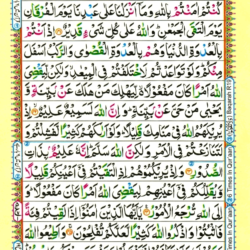 كُنْتُمْ اٰمَنْتُمْ بِاللّٰهِ وَمَاۤ اَنْزَلْنَا عَلٰى عَبْدِنَا يَوْمَ الْفُرْقَانِ
يَوْمَ الْتَقَى الْجَمْعٰنِ وَاللّٰهُ عَلٰى كُلِّ شَىْءٍ قَدِيْرٌ اِذْ اَنْتُمْ
بِالْعُدْوَةِ الدُّنْيَا وَهُمْ بِالْعُدْوَةِ الْقُصْوٰى وَالرَّكْبُ اَسْفَلَ
مِنْكُمْ وَلَوْ تَوَاعَدْتُّمْ لَاخْتَلَفْتُمْ فِى الْمِيْعٰدِ وَلٰكِنْ لِّيَقْضِىَ
اللّٰهُ اَمْرًا كَانَ مَفْعُوْلًا لِّيَهْلِكَ مَنْ هَلَكَ عَنْ بَيِّنَةٍ وَّ
يَحْيٰى مَنْ حَىَّ عَنْ بَيِّنَةٍ وَاِنَّ اللّٰهَ لَسَمِيْعٌ عَلِيْمٌ اِذْ
يُرِيْكَهُمُ اللّٰهُ فِىْ مَنَامِكَ قَلِيْلًا وَلَوْ اَرٰىكَهُمْ كَثِيْرًا لَّفَشِلْتُمْ وَ
لَتَنَازَعْتُمْ فِى الْاَمْرِ وَلٰكِنَّ اللّٰهَ سَلَّمَ اِنَّهٗ عَلِيْمٌ بِذَاتِ
الصُّدُوْرِ وَاِذْ يُرِيْكُمُوْهُمْ اِذِ الْتَقَيْتُمْ فِىْ اَعْيُنِكُمْ قَلِيْلًا
وَّيُقَلِّلُكُمْ فِىْ اَعْيُنِهِمْ لِيَقْضِىَ اللّٰهُ اَمْرًا كَانَ مَفْعُوْلًا وَ
اِلَى اللّٰهِ تُرْجَعُ الْاُمُوْرُ يٰۤاَيُّهَا الَّذِيْنَ اٰمَنُوْۤا اِذَا لَقِيْتُمْ فِئَةً
فَاثْبُتُوْا وَاذْكُرُوا اللّٰهَ كَثِيْرًا لَّعَلَّكُمْ تُفْلِحُوْنَ وَاَطِيْعُوا